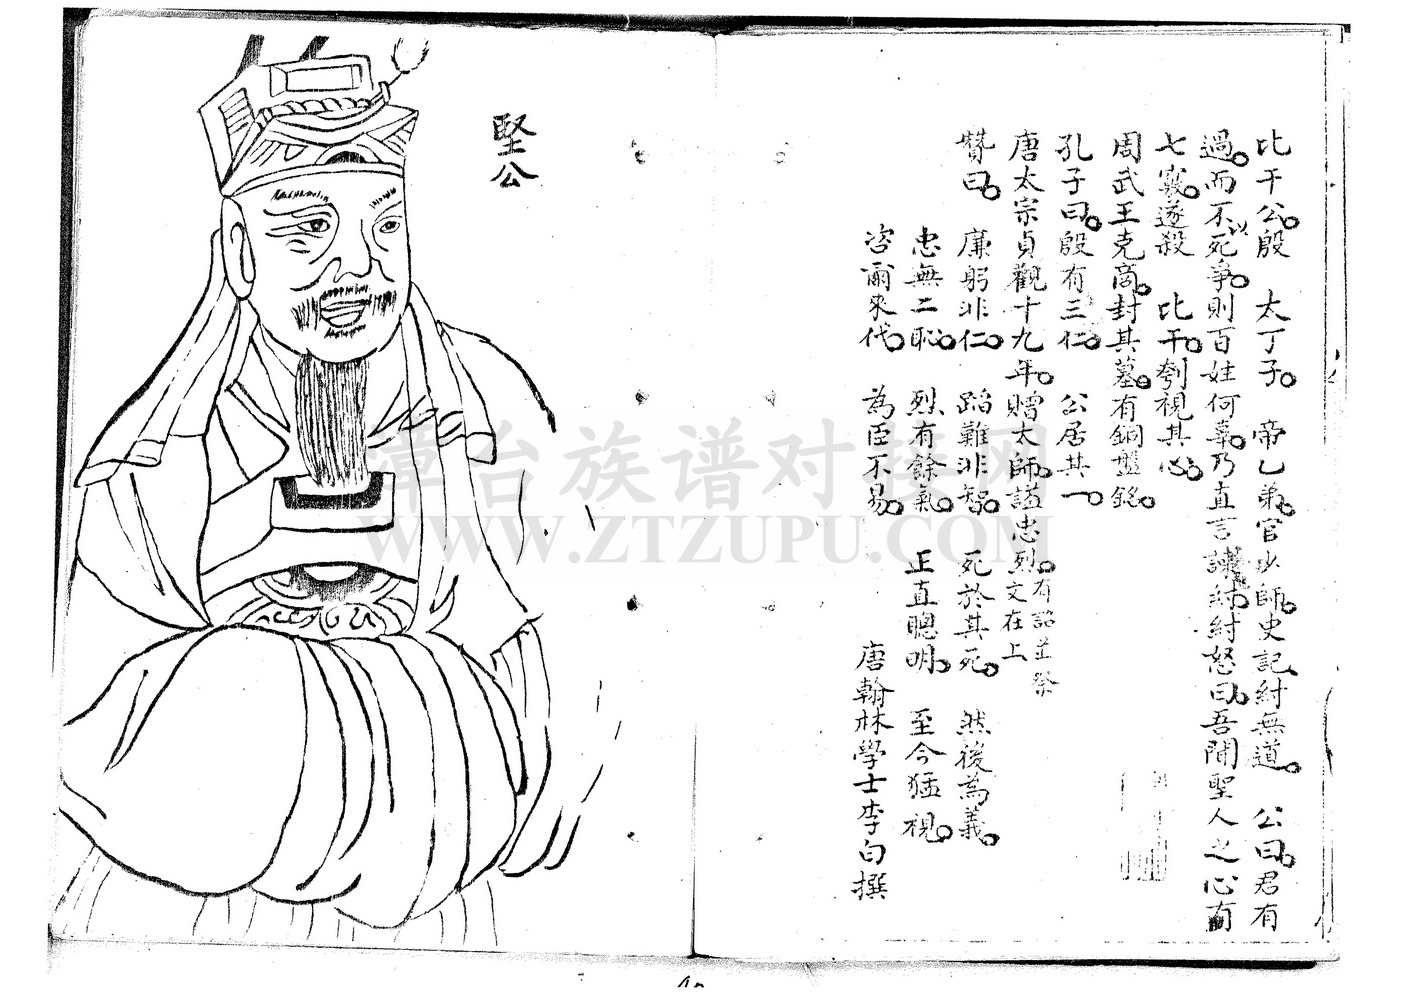 比干公。殷 太丁子。 帝乙弟。官少師。史記紂無道。 公曰。君有
過。而不以死爭。則百姓何辜。乃直言諫紂。紂怒曰。吾聞聖人之心有
七竅。遂殺 比干。刳視其心。
周武王克商。封其墓。有銅盤銘。
孔子曰。殷有三仁。 公居其一。
唐太宗貞觀十九年。贈太師。謚忠烈。有詔並祭
文在上
贊曰。 廉躬非仁。 蹈難非智。 死於其死。 然後為義。
忠無二恥。 烈有餘氣。 正直聰明。 至今猛視。
咨爾來代。 為臣不易。
唐翰林學士李白撰
堅公
譜台族谱对接网
WWW.ZTZUPU.COM